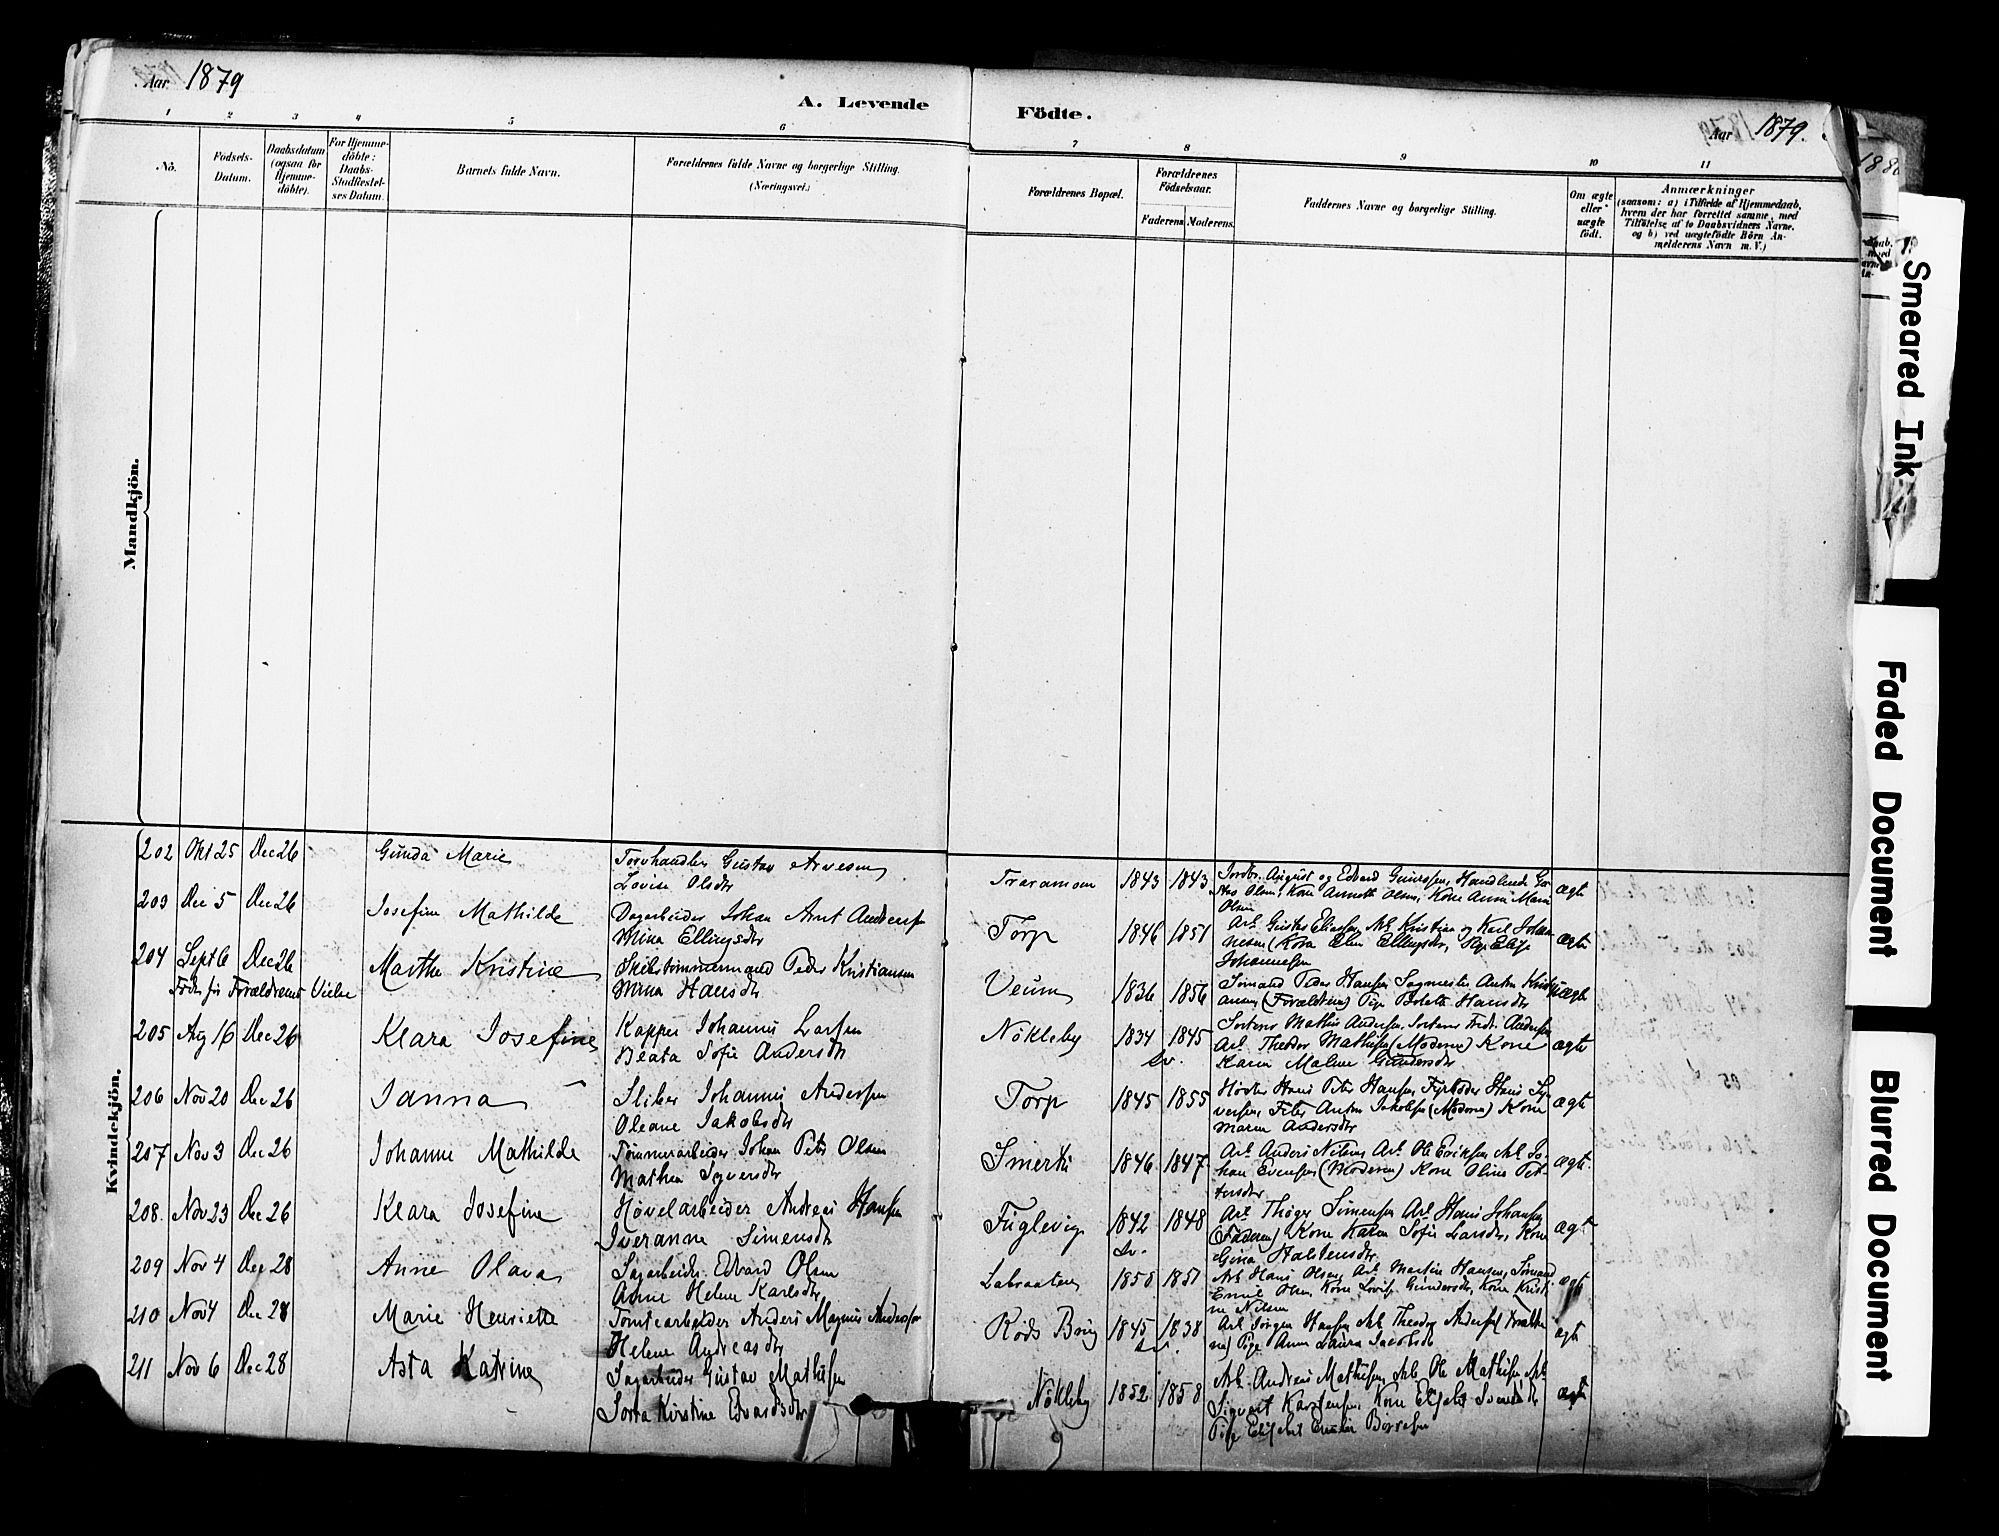 Aar 1879
A. Levende Födte.
Aar 1879.
1 2 3 4 5 6 7 8 9 10 11
No.
Födsels-
Datum.
Daabsdatum
(ogsaa for
Hjemme-
döbte).
For Hjemme-
döbte:
Daabs-
Stadfæstel-
ses Datum.
Barnets fulde Navn.
Forældrenes fulde Navne og borgerlige Stilling.
(Næringsvei.)
Forældrenes Bopæl.
Forældrenes
Födselsaar.
Faderens Moderens.
Faddernes Navne og borgerlige Stilling.
Om ægte
eller
uægte
födt.
Anmærkninger
(saasom: a) i Tilfælde af Hjemmedaab,
hvem der har forrettet samme, med
Tilföielse af to Daabsvidners Navne,
og b) ved uægtefödte Börn An-
melderens Navn m. V.)
Mandkjön.
Kvindekjön.
202 Okt 25 Dec 26 Gunda Marie
Gustav Arvesen
Lovise Olsdtr
1843 1843
August og Edvard
Olsen, Kone Annette Olsen, Kone Anna Marie
Olsen
ægte
203 Dec 5 Dec 26 Josefine Mathilde
Dagarbeider Johan Arnt Andersen
Mina Ellingsdtr
Torp 1846 1851
Arb. Gustav Eliassen, Arb. Kristian og Karl Johan-
nesen (Kone Elen Ellingsdtr, Elise
Johannesen
ægte
204 Sept 6 Dec 26 Marthe Kristine
Födt för Forældrenes Vielse
Skibstömmermand Peder Kristiansen
Mina Hansdtr
Veum 1836 1856
Sömand Peder Hansen, Sagmester Anton Kristi-
ansen (Forældrene) Pige Bolette Hansdtr
uægte
205 Aug 16 Dec 26 Klara Josefine
Kapper Johannes Larsen
Beata Sofie Andersdtr
Nökleby 1834 1845
Sv.
Mathias Andersen, Andersen
Arb. Theodor Mathisen (Moderen) Kone
Karen Malene Gundersdtr
ægte
206 Nov 20 Dec 26 Janna
Sliber Johannes Andersen
Oleane Jakobsdtr
Torp 1845 1855
Hövler Hans Peter Hansen, Fyrböder Hans Sy-
versen, Anton Jakobsen (Moderen) Kone
Maren Andersdtr
ægte
207 Nov 3 Dec 26 Johanne Mathilde
Tömmerarbeider Johan Peter Olsen
Mathea Syversdtr
Smertu 1846 1847
Arb. Anders Nilsen Arb. Ole Eriksen Arb. Jo-
han Evensen (Moderen) Kone Oline Pet-
tersdtr
ægte.
208. Nov 23 Dec 26 Klara Josefine
Hövelarbeider Andreas Hansen
Iveranne Simensdtr
Fuglevig 1842 1848
Sv.
Arb. Thöger Simensen Arb. Hans Johansen
(Faderen) Kone Karen Sofie Larsdtr, Kone
Gina Halstensdtr.
ægt
209 Nov 4 Dec 28 Anne Olava
Sagarbeider Edvard Olsen
Anne Helene Karlsdtr
Labraaten 1850 1851
Arb. Hans Olsen, Arb. Martin Hansen, Sömand
Emil Olsen, Kone Lovise Gundersdtr, Kone Kristi-
ne Nilsen
ægt
210 Nov 4 Dec 28 Marie Henriette
Tomtearbeider Anders Magnus Andersen
Helene Andreasdtr
Röds Brug 1845 1838
Sv.
Arb. Jörgen Hansen Arb. Theodor Andersen (Forældre-
ne) Pige Anna Laura Jacobsdtr
ægt
211 Nov 6 Dec 28 Asta Katrine
Sagarbeider Gustav Mathisen
Kirstine Edvardsdtr
Nökleby 1852 1858
Arb. Andreas Mathisen, Arb. Ole Mathisen, Arb.
Sigvart Karstensen, Kone
Pige Elisabet Emilie Börresen
ægte
1880
Smeared Ink
Faded Document
Blurred Document